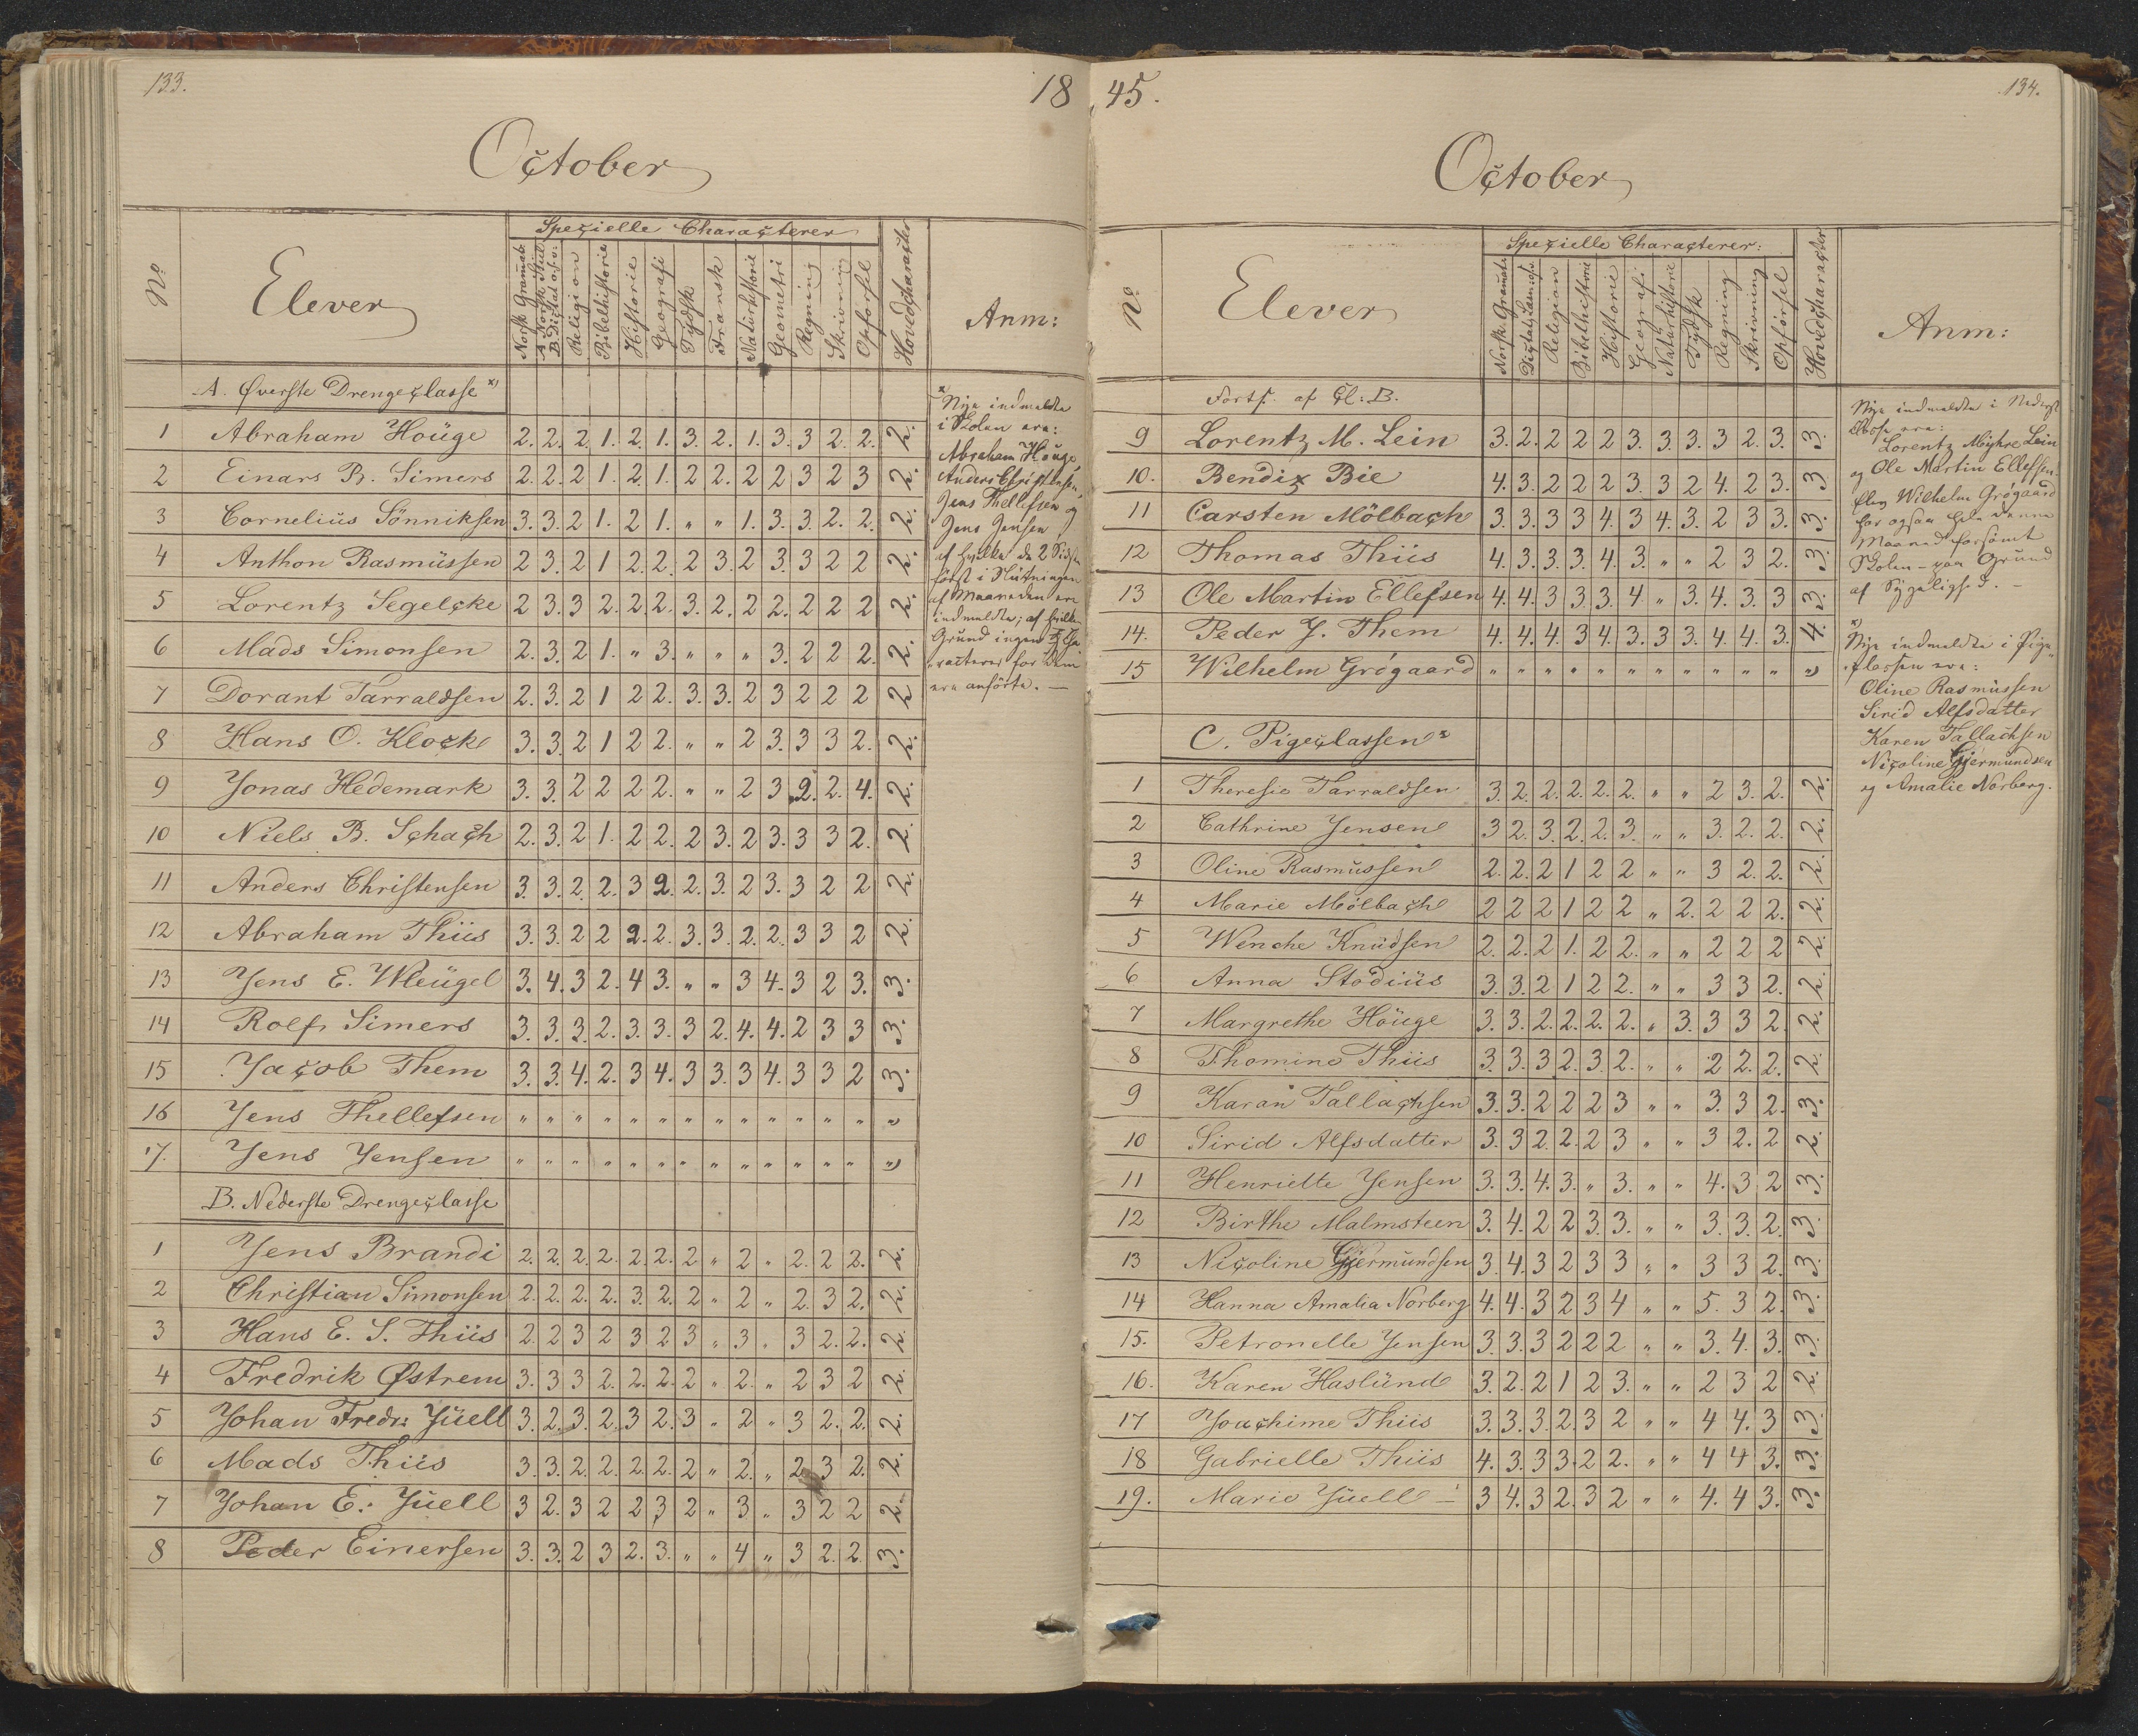 133.
18
October
No
Elever
Specielle Characterer
Norsk Gramat:
A Norsk Stiil
B. Dictat o.s.v:
Religion
Bibelhistorie
Historie
Geografi
Tydsk
Fransk
Naturhistorie
Geometri
Regning
Skrivning
Opførsel
Hovedcharacter
Anm:
A. Øverste Drengeclasse x)
1 Abraham Houge 2. 2. 2 1. 2. 1. 3. 2. 1. 3. 3 2. 2. 2.
2 Einars B. Simers 2. 2. 2 1. 2. 1. 2 2. 2 2 3 2 3 2.
3 Cornelius Sönniksen 3. 3. 2 1. 2 1. " " 1. 3. 3. 2. 2. 2.
4 Anthon Rasmussen 2 3. 2 1 2. 2. 2 3. 2 3. 3 2 2 2.
5 Lorentz Segelcke 2 3. 3 2. 2. 2. 3. 2. 2 2. 2 2 2 2.
6 Mads Simonsen 2. 3. 2 1. " 3. " " " 3. 2 2 2. 2.
7 Dorant Tarraldsen 2. 3. 2 1 2 2. 3. 3. 2 3 2 2 2 2
8 Hans O. Klock 3. 3. 2 1 2 2. " " 2 3. 3 3 2. 2.
9 Jonas Hedemark 3. 3. 2 2 2 2. " " 2 3 2. 2. 4. 2.
10 Niels B. Schach 2. 3. 2 1. 2 2. 2 3. 2 3. 3 3 2. 2.
11 Anders Christensen 3. 3. 2. 2. 3 2. 2. 3. 2 3. 3 2 2 2.
12 Abraham Thiis 3. 3. 2 2 2. 2. 3. 3. 2. 2. 3 3 2 2.
13 Jens E. Wleugel 3. 4. 3 2. 4 3. " " 3 4. 3 2 3. 3.
14 Rolf Simers 3. 3. 3. 2. 3. 3. 3 2. 4. 4. 2 3 3 3.
15 Jacob Them 3. 3. 4. 2. 3 4. 3 3. 3 4. 3 3 2 3.
16 Jens Thellefsen " " " " " " " " " " " " " "
17. Jens Jensen " " " " " " " " " " " " " "
B. Nederste Drengeclasse
1 Jens Brandi 2. 2. 2. 2. 2. 2. 2 " 2 " 2. 2 2. 2.
2 Christian Simonsen 2. 2. 2. 2. 3. 2. 2 " 2 " 2. 3 2. 2.
3 Hans E. S. Thiis 2. 2 3 2 3 2 3 " 3 " 3 2. 2. 2.
4 Fredrik Østrem 3. 3 3 2. 2. 2. 2 " 2. " 2 3 2 2.
5 Johan Fredr: Juell 3. 2. 3. 2. 3 2. 3 " 2 " 3 2. 2. 2.
6 Mads Thiis 3. 3. 2. 2. 2. 2. 2 " 2. " 2 3 2. 2.
7 Johan E: Juell 3 2. 3 2 2 3 2 " 3 " 3 2 2 2.
8 Peder Einersen 3. 3. 2 3 2. 3. " " 4 " 3 2. 2. 3.
x
Nye indmeldte
i Skolen ere:
Abraham Houge,
Anders Christensen,
Jens Thellefsen og
Jens Jensen
af hvilke de 2 Sidste
först i Slutningen
af Maaneden ere
indmeldte; af hvilken
Grund ingen Cha
racterer for dem
ere anförte. —
45.
134.
October
No
Elever
Specielle Characterer:
Norsk Gramat:
Dictat, Læsn: o.s.v.
Religion
Bibelhistorie
Historie
Geografi
Naturhistorie
Tydsk
Regning
Skrivning
Opførsel
Hovedcharacter
Anm:
Forts. af Cl: B.
9 Lorentz M. Lein 3. 2. 2 2 2 3. 3. 3. 3 2. 3. 3.
10. Bendix Bie 4. 3. 2 2 2 3. 3 2 4. 2 3. 3
11 Carsten Mölbach 3. 3. 3 3 4. 3 4. 3. 2 3 3. 3.
12 Thomas Thiis 4. 3. 3. 3. 4. 3. " " 2 3 2. 3.
13 Ole Martin Ellefsen 4. 4. 3 3. 3. 4 " 3. 4. 3. 3 3.
14. Peder J. Them 4. 4. 4. 3 4. 3. 3 3. 4. 4. 3. 4.
15 Wilhelm Grögaard " " " " " " " " " " " "
C. Pigeclassen x
1 Theresie Tarraldsen 3. 2. 2. 2. 2. 2. " " 2 3. 2. 2.
2 Cathrine Jensen 3 2. 3. 2. 2. 3. " " 3. 2. 2. 2.
3 Oline Rasmussen 2. 2. 2 1 2 2 " " 3 2. 2. 2.
4 Marie Mölbach 2 2 2 1 2 2 " 2. 2 2 2. 2.
5 Wenche Knudsen 2. 2. 2 1. 2 2. " " 2 2 2 2.
6 Anna Stodius 3. 3. 2 1 2 2. " " 3 3 2. 2.
7 Margrethe Houge 3. 3. 2. 2. 2. 2. " 3. 3 3 2 2.
8 Thomine Thiis 3. 3. 3 2. 3. 2. " " 2 2. 2. 2.
9 Karan Tallachsen 3. 3. 2 2 2 3 " " 3. 3 2. 3.
10 Sirid Alfsdatter 3. 3 2 2. 2 3 " " 3 2. 2 2.
11 Henriette Jensen 3. 3. 4. 3. " 3. " " 4. 3 2 3.
12 Birthe Malmsteen 3. 4. 2 2 3. 3. " " 3. 3. 2. 3.
13 Nicoline Gjermundsen 3 4. 3 2 3 3 " " 3 3 2. 3.
14 Hanna Amalia Norberg 4. 4. 3 2 3 4 " " 5. 3 2. 3.
15. Petronelle Jensen 3. 3. 3 2 2 2 " " 3. 4. 3. 3.
16. Karen Haslund 3. 2. 2 1 2 3. " " 2 3 2 2.
17 Joachime Thiis 3. 3. 3. 2. 3 2 " " 4 4. 3 3.
18 Gabrielle Thiis 4. 3. 3 3. 2 2. " " 4 4 3. 3.
19. Marie Juell — 3 4. 3 2. 3 2 " " 4. 4 3. 3.
Nye indmeldte i Nederst
Classe ere:
Lorentz Myhre Lein
og Ole Martin Ellefsen.
Elev Wilhelm Grögaard
har ogsaa hele denne
Maaned forsömt
Skolen – paa Grund
af Sygelighed. —
x
Nye indmeldte i Pige
classen ere:
Oline Rasmussen
Sirid Alfsdatter
Karen Tallachsen
Nicoline Gjermundsen
og Amalie Norberg.